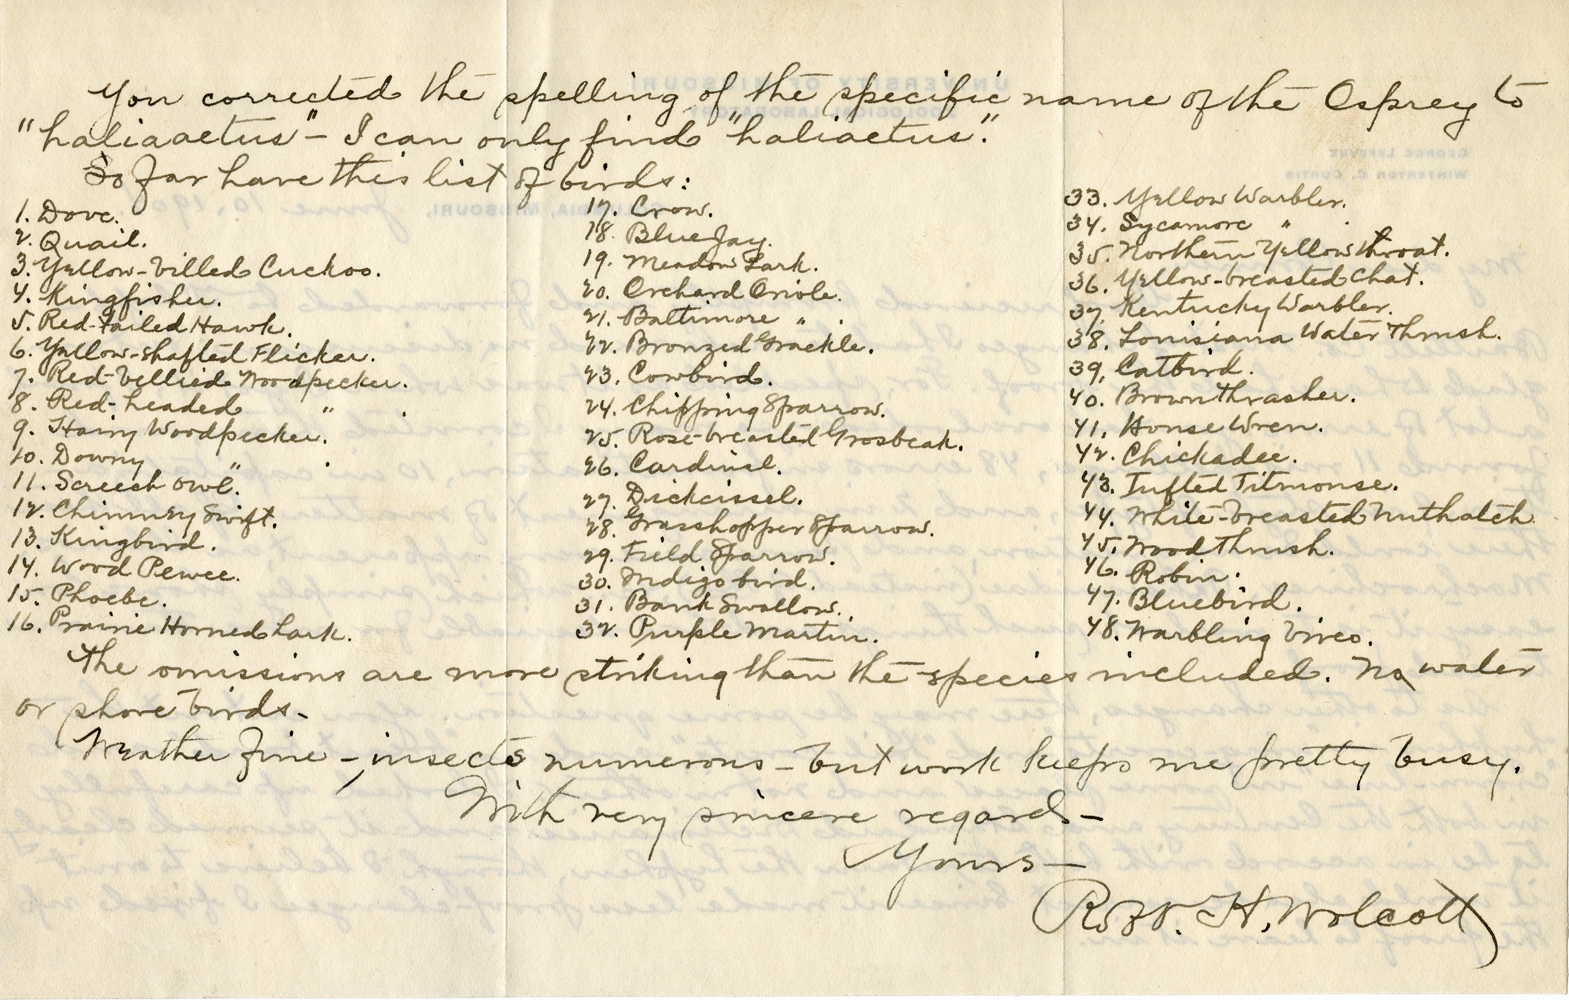 You corrected the spelling of the specific name of the Osprey to
"haliaaetus" – I can only find "haliaetus".
So far have this list of birds:
1. Dove.
2. Quail.
3. Yellow-billed Cuckoo.
4. Kingfisher.
5. Red-tailed Hawk.
6. Yellow-shafted Flicker.
7. Red-bellied Woodpecker.
8. Red-headed "
9. Hairy Woodpecker.
10. Downy " .
11. Screech Owl.
12. Chimney Swift.
13. Kingbird.
14. Wood Pewee.
15. Phoebe.
16. Prairie Horned Lark.
17. Crow.
18. Blue Jay.
19. Meadow Lark.
20. Orchard Oriole.
21. Baltimore " .
22. Bronzed Grackle.
23. Cowbird.
24. Chipping Sparrow.
25. Rose-breasted Grosbeak.
26. Cardinal.
27. Dickcissel.
28. Grasshopper Sparrow.
29. Field Sparrow.
30. Indigo bird.
31. Bank Swallow.
32. Purple Martin.
33. Yellow Warbler.
34. Sycamore " .
35. Northern Yellow throat.
36. Yellow-breasted Chat.
37. Kentucky Warbler.
38. Louisiana Water Thrush.
39. Catbird.
40. Brown thrasher.
41. House Wren.
42. Chickadee.
43. Tufted Titmouse.
44. White-breasted Nuthatch
45. Wood Thrush.
46. Robin.
47. Bluebird.
48. Warbling Vireo.
The omissions are more striking than the species included. No water
or shore birds –
Weather fine – insects numerous – but work keeps me pretty busy.
With very sincere regards –
Yours –
Robt. H. Wolcott